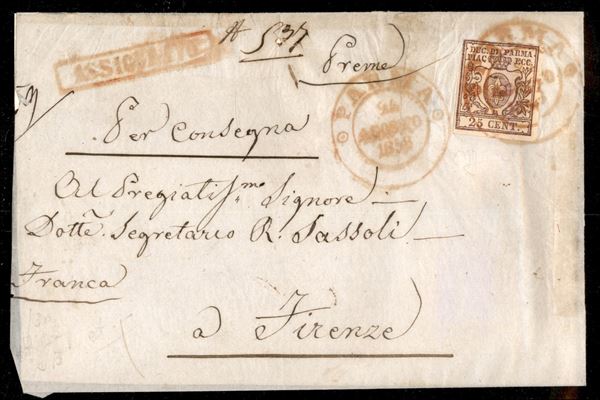 ASSICURATO
537
Preme
PARMA
24
AGOSTO
PARMA
DUC. DI PARMA
PIAC. ECC.
25 CENT.
Per Consegna
Al Pregiatis.mo Signore
Dotte. Segretario R. Sassoli
Franca
a Firenze